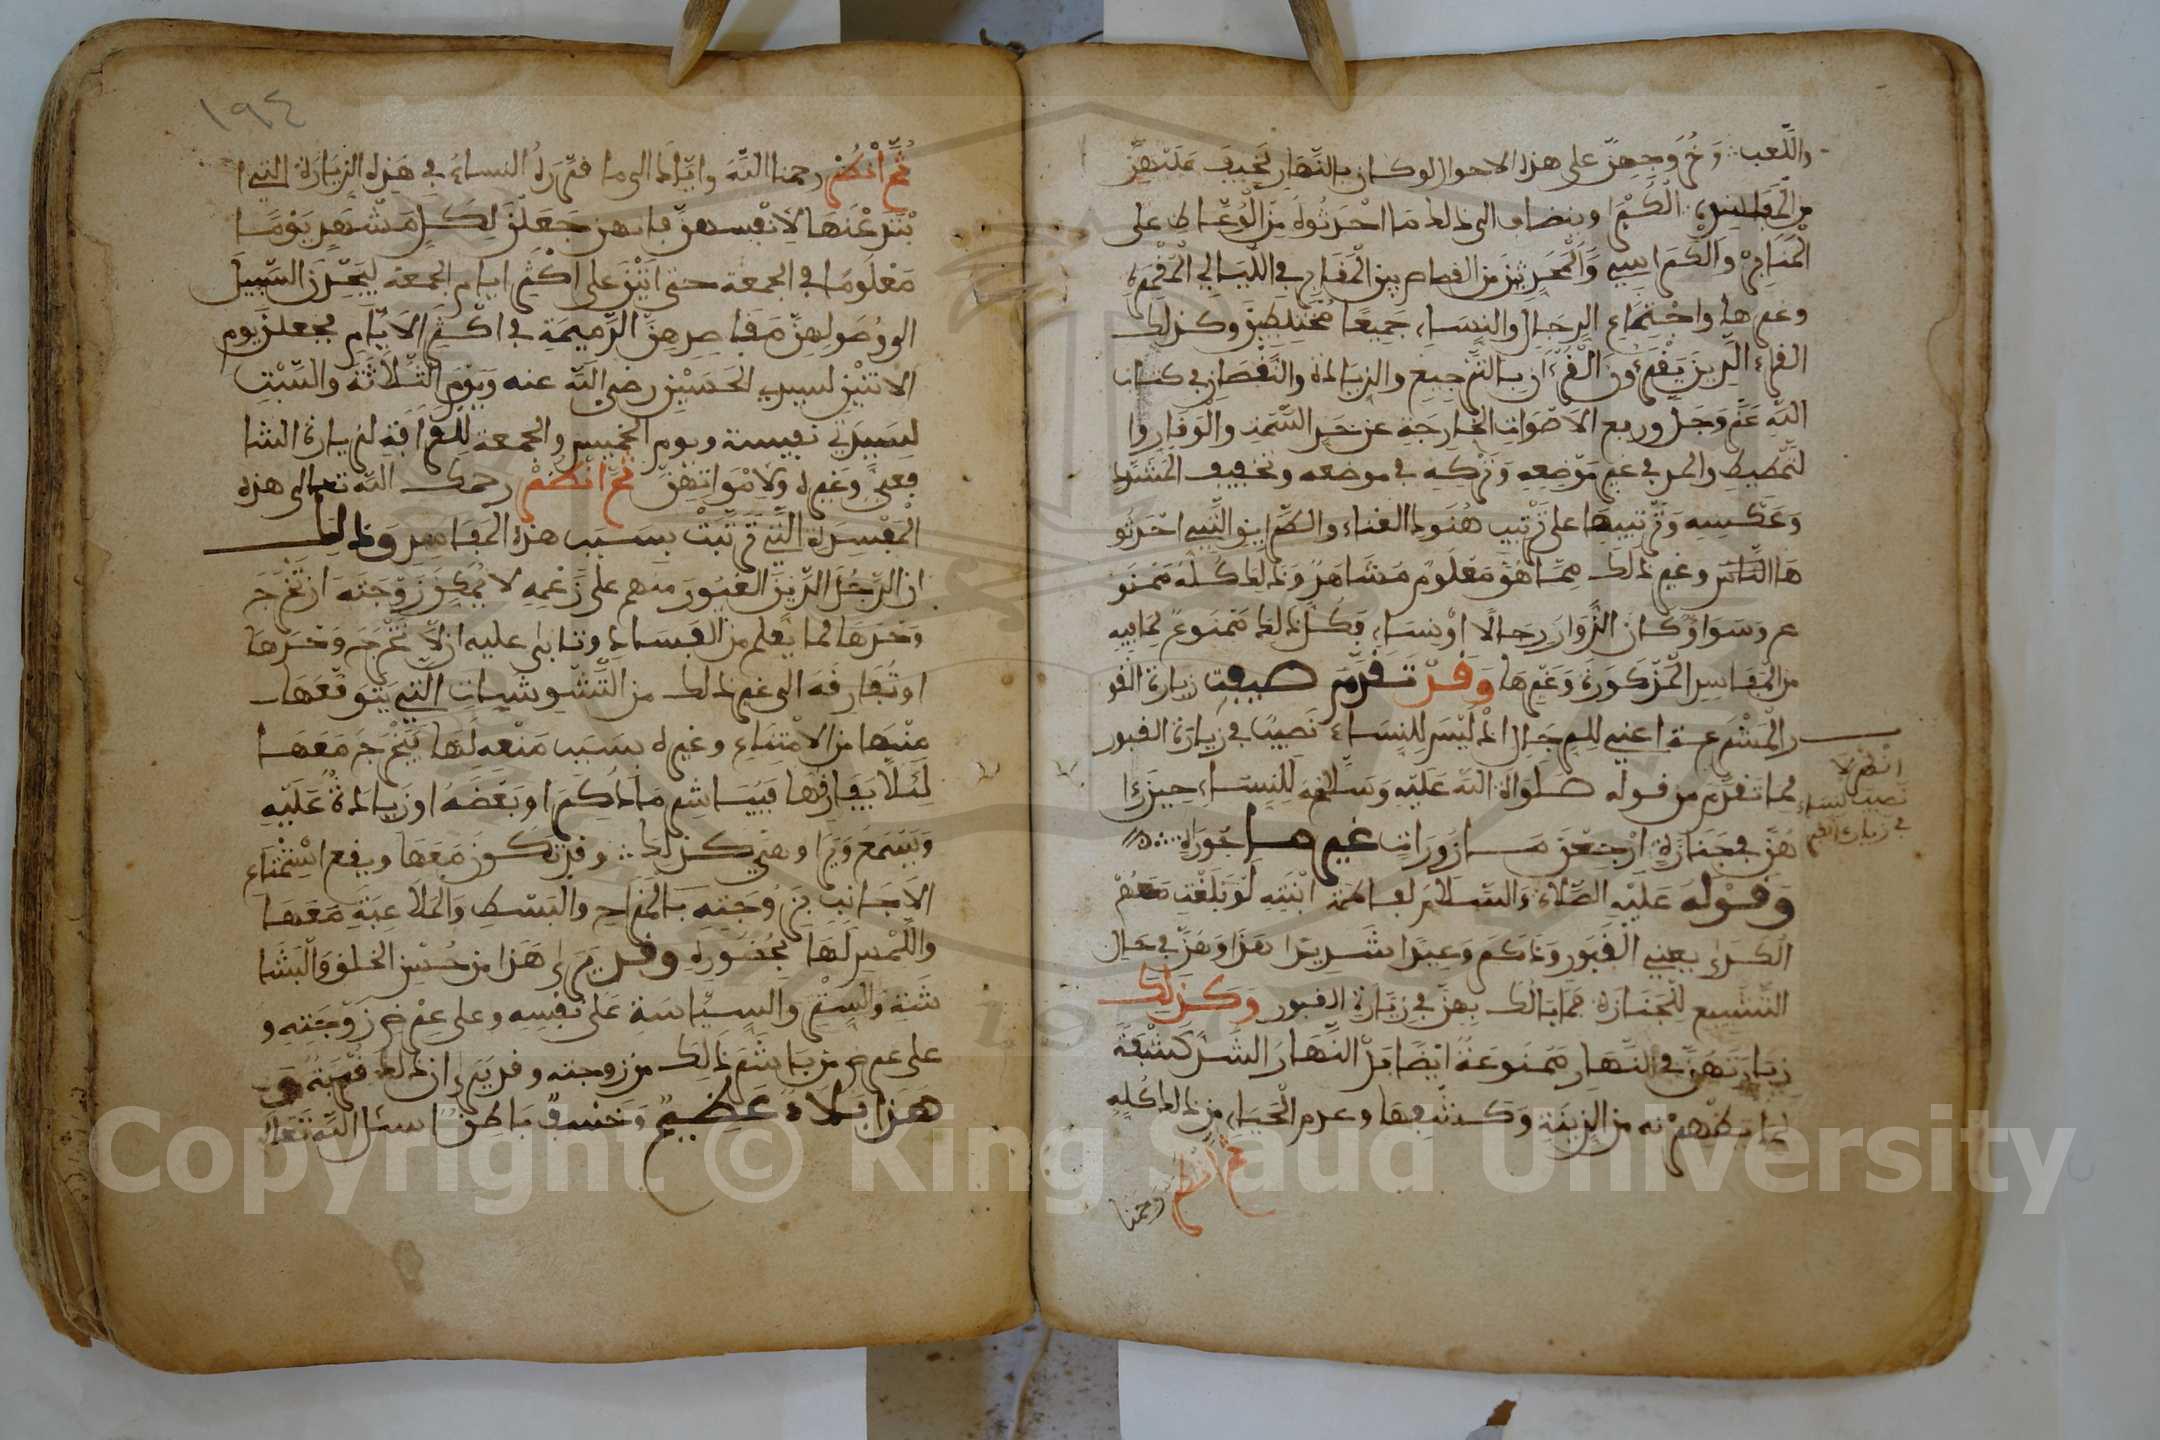 واللعب وخروجهن على هذه الاحوال لو كان بالنهار لخيف عليهن
من المفاسد الكبرا وينضاف الى ذلك ما احدثوه من الوعاظ على
المنابر والكراسي والمحدثين من القصاص بين المقابر في الليالي المقمرة
وغيرها واجتماع الرجال والنساء جميعا مختلطين وكذلك
القراء الذين يقرءون القرءان بالترجيع والزيادة والنقصان في كتاب
الله عز وجل ورفع الاصوات الخارجة عن حد السمت والوقار وا
لتمطيط والمد في غير موضعه وتركه في موضعه وتخفيف المشدد
وعكسه وترتيبها على ترتيب هنود الغناء والطرايق التي احدثو
ها الناس وغير ذلك مما هو معلوم مشاهد وذلك كله ممنو
ع وسواء كان الزوار رجالا او نساء فكل ذلك ممنوع لما فيه
من المفاسد المذكورة وغيرها وقد تقدم صفت زيارة القبو
ر المشرعة اعني للرجال اذ ليس للنساء نصيب في زيارة القبور
لما تقدم من قوله صلوات الله عليه وسلامه للنساء حين رءا
هن في جنازة ارجعن مازورات غير ماجورات
وقوله عليه الصلاة والسلام لفاطمة ابنته لو بلغت معهم
الكدا يعني القبور وذكر وعيدا شديدا هذا وهن في حال
التشييع للجنازة فما بالك بهن في زيارة القبور وكذلك
زيارتهن في النهار ممنوعة ايضا بل النهار اشد كشفة
لما يظهرنه من الزينة وكشفها وعدم الحياء من ذلك كله
ثم انظر رحمنا
انظر لا
نصيب لنساء
في زيارة القبر
١٩٤
ثم انظر رحمنا الله واياك الى ما قررة النساء في هذه الزيارة التي ا
بتدعنها لانفسهن فانهن جعلن لكل مشهد يوما
معلوما في الجمعة حتى اتين على اكثر ايام الجمعة ليجدن السبيل
الى وصولهن مقاصدهن الذميمة في اكثر الايام فجعلن يوم
الاثنين لسيد الحسين رضي الله عنه ويوم الثلاثة والسبت
لسيدتي نفيسة ويوم الخميس والجمعة للقرافة لزيارة الشا
فعي وغيره ولامواتهن ثم انظر رحمك الله تعالى هذه
المفسدة التي ترتبت بسبب هذه المفاسد وذلك
ان الرجل الدين الغيور منهم على زعمه لا يمكن زوجته ان تخرج
وحدها لما يعلم من الفساد وتابى عليه ان لا تخرج وحدها
او تفارقه الى غير ذلك من التشويشات التي يتوقعها
منها من الامتناع وغيره بسبب منعه لها فيخرج معها
لئلا يفارقها فيباشر ما ذكر او بعضه او زيادة عليه
ويسمع ويرا وهي كذلك وقد تكون معها ويقع استمتاع
الاجانب بزوجته بالمزاح والبسط والملاعبة معها
واللمس لها بحضوره وقد يرى هذا من حسن الخلق والبشا
شة والستر والسياسة على نفسه وعلى عرض زوجته و
على عرض من باشر ذلك من زوجته وقد يرى ان ذلك قربة
هذا بلاء عظيم وخسف باطن اسئل الله تعالى